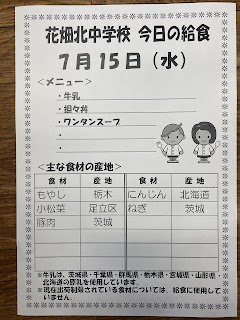 花畑北中学校 今日の給食
7月15日（水）
＜メニュー＞
・牛乳
・担々丼
・ワンタンスープ
・
・
＜主な食材の産地＞
食材 産地 食材 産地
もやし 栃木 にんじん 北海道
小松菜 足立区 ねぎ 茨城
豚肉 茨城
※牛乳は、茨城県・千葉県・群馬県・栃木県・宮城県・山形県・
北海道の原乳を使用しています。
※現在出荷制限されている食材については、給食に使用して
いません。